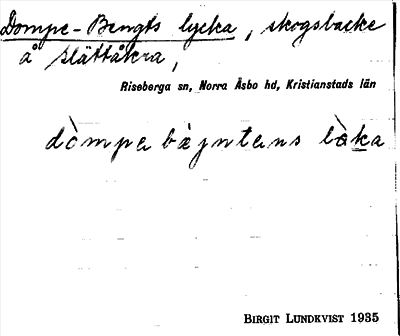 Dompe-Bengts lycka, skogsbacke
å Slättåkra,
Riseberga sn, Norra Åsbo hd, Kristianstads län
dòmpa bæ̀yntens lòka
BIRGIT LUNDKVIST 1935